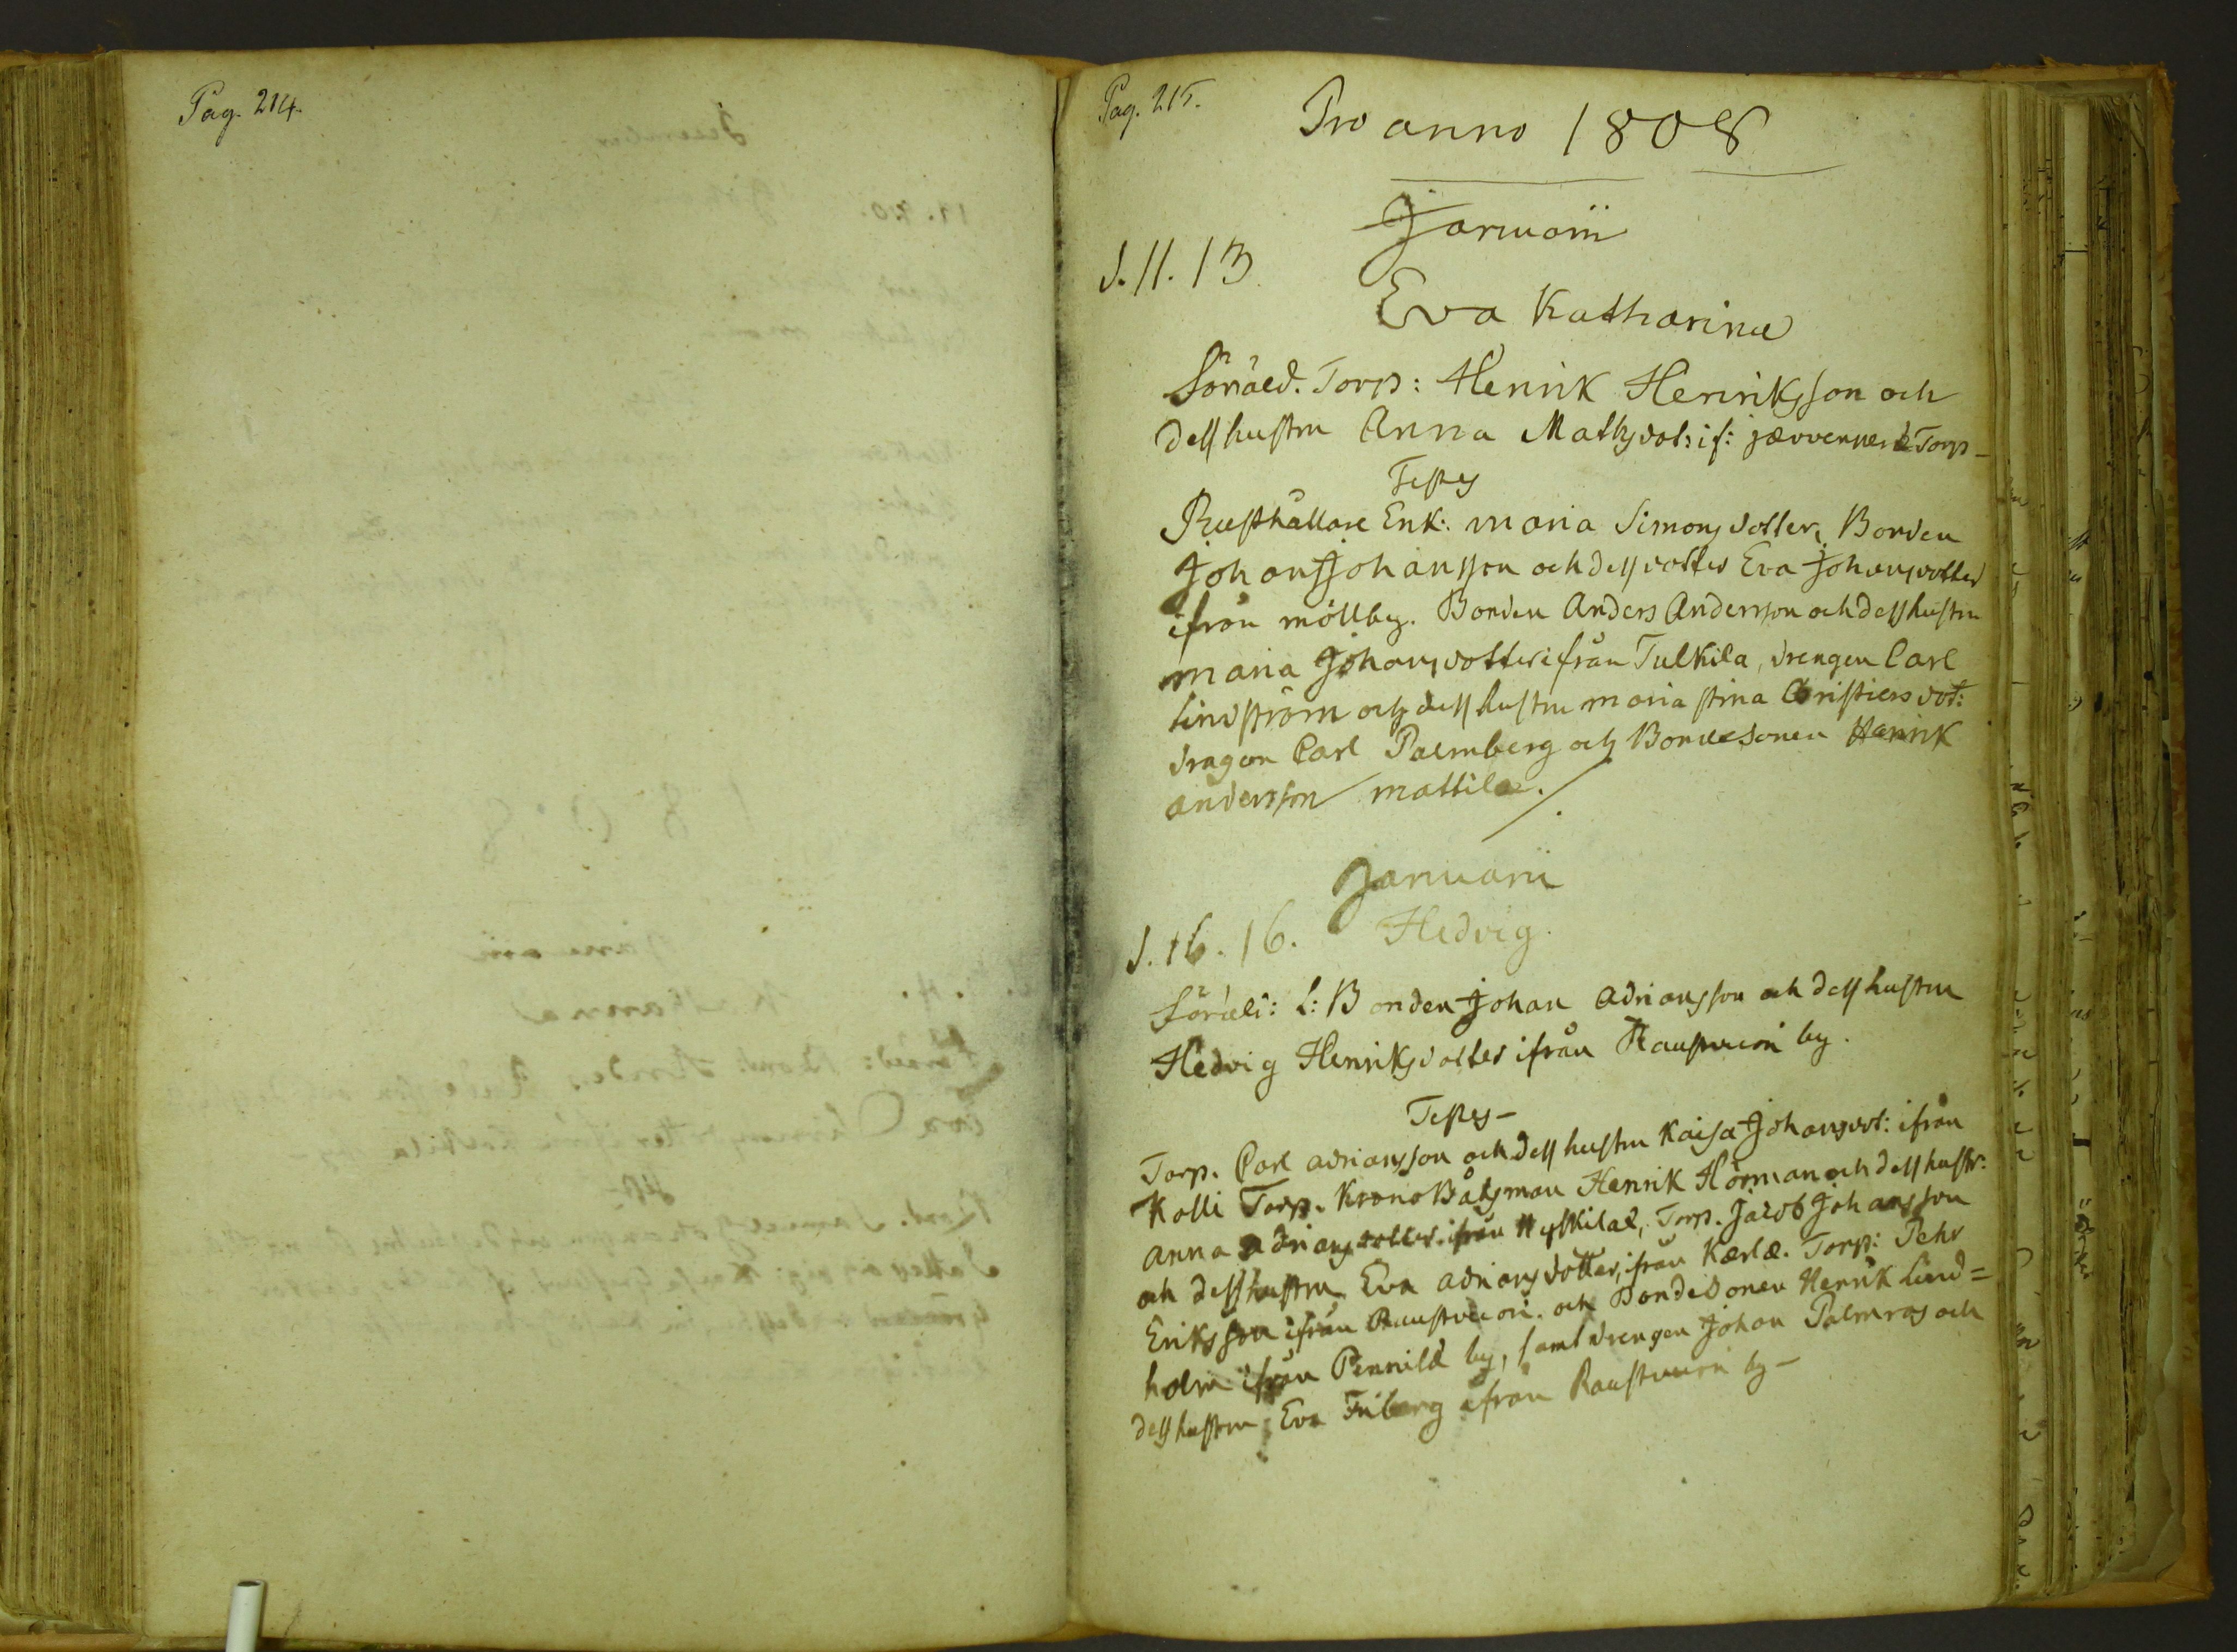 Pag. 214.
Pag. 215.
Pro anno 1808
Januarii
d. 11. 13
Eva Katharina
Föräld. Torp: Henrik Henriksson och
dess hustru Anna Matsdot: if: Torp-
Testes
Rusthållare Enk: Maria Simonsdotter, Bonden
Johan Johansson och dess dotter Eva Johansdotter
ifrån möllby. Bonden Anders Andersson och dess hustru
Maria Johansdotter ifrån Tulkila, drengen Carl
Lindström och dess hustru Maria Stina Christiersdot:
dragon Carl Palmberg och Bondesonen Henrik
Andersson mattila.
Januarii
d. 16. 16. Hedvig.
Föräl: L: Bonden Johan Adriansson och dess hustru
Hedvig Henriksdotter ifrån by.
Testes-
Torp. Carl Adriansson och dess hustru Kaisa Johansdot: ifrån
Kolli Torp. Krono Båtsman Henrik Hörman och dess hustr:
Anna Adriansdotter ifrån Torp. Jacob Johansson
och dess hustru Eva Adriansdotter, ifrån Torp: Pehr
Eriksson ifrån och Bondesonen Henrik Lind=
holm ifrån Pennilä by, samt drengen Johan Palmros och
dess hustru Eva Friberg ifrån by-